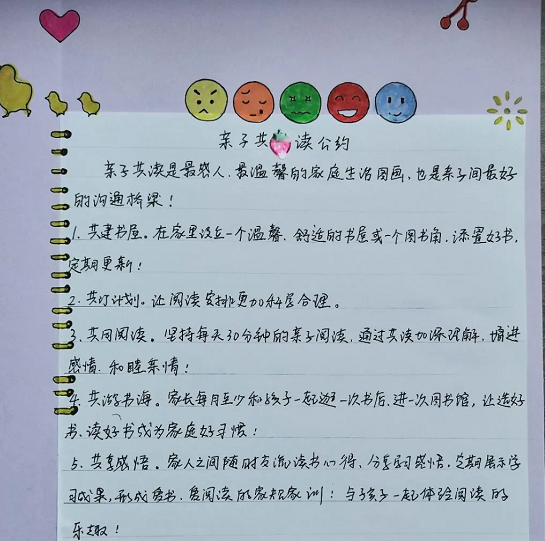 亲子共读公约
亲子共读是最感人、最温馨的家庭生活图画,也是亲子间最好
的沟通桥梁!
1. 共建书屋。在家里设立一个温馨、舒适的书屋或一个图书角,添置好书,
定期更新!
2. 共订计划。让阅读安排更加科学合理。
3、共同阅读。坚持每天30分钟的亲子阅读,通过共读加深理解,增进
感情、和睦亲情!
4. 共游书海。家长每月至少和孩子一起逛一次书店、进一次图书馆,让选好
书、读好书成为家庭好习惯!
5、共享感悟。家人之间随时交流读书心得、分享学习感悟,定期展示学
习成果,形成爱书、爱阅读的家规家训!与孩子一起体验阅读的
乐趣!